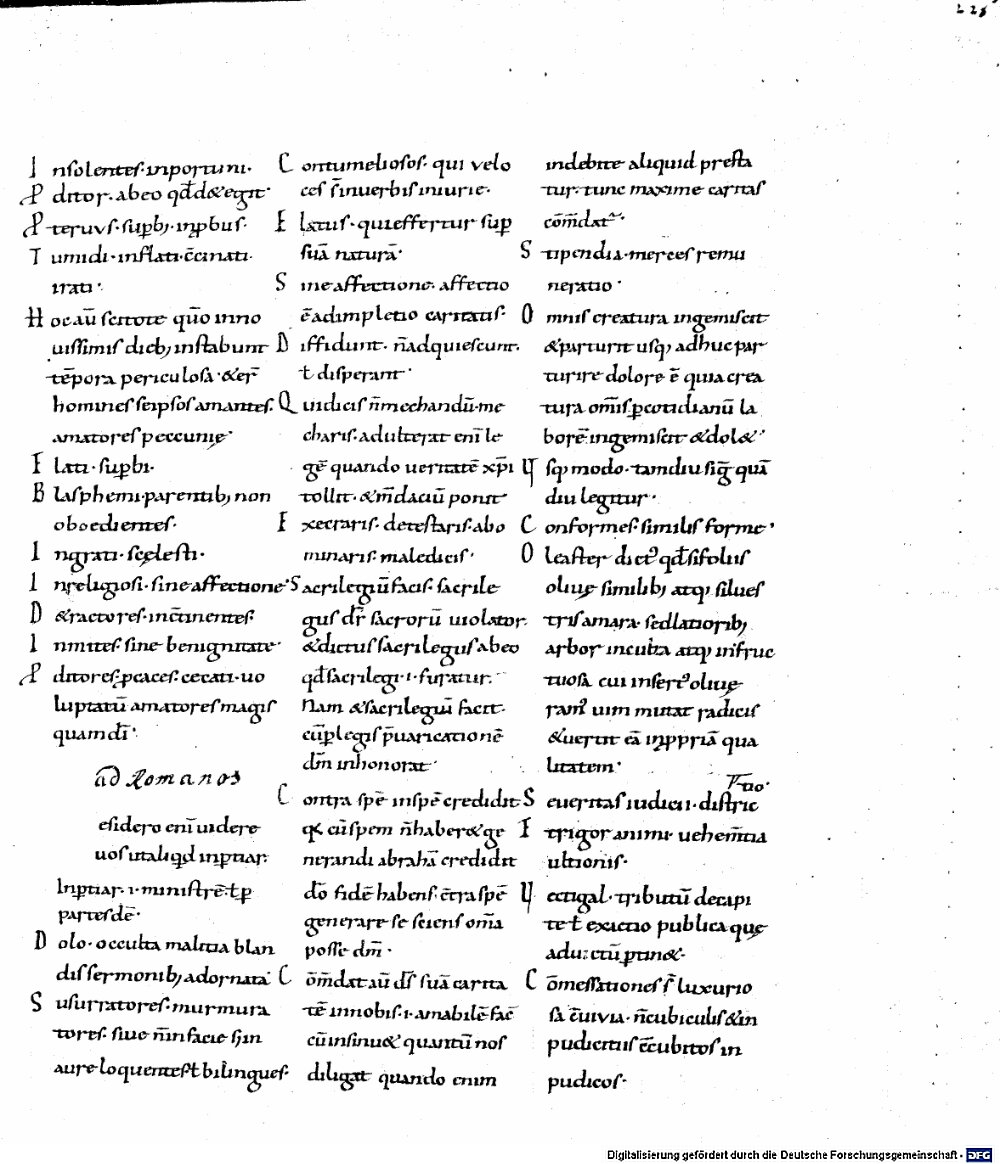 228
Insolentes· inportuni·
Pditor· ab eo qđ d&egit
Pteruus· supbꝫ· inpbus·
Tumidi· inflati· c̄cinati·
irati·
Hoc aū scitote qūo in no
uissimis dieb; instabunt
tēpora periculosa· & er̄
homines seipsos amantes·
amatores peccunię·
Elati· supbi·
Blasphemi· parentib; non
oboedientes·
Ingrati· scęlesti·
Inreligiosi· sine affectione·
D&ractores· inc̄tinentes·
Inmites· sine benignitate
Pditores· p̱caces· cecati· uo
luptatū amatores magis
quam dī·
ad Romanos
esidero enī uidere
uos ut aliqd inptiar·
Inptiar· i· ministrē· ł p
partes dē·
Dolo· occulta malitia blan
dis sermonib; adornata
Susurratores· murmura
tores· siue n̄ in facie s; in
aure loquentes ł bilingues·
Contumeliosos· qui velo
ces s̄ in uerbis iniurie·
Elatus· qui effertur sup
suā naturā·
Sine affectione· affectio
ē adimpletio caritatis·
Diffidunt· n̄ adquiescunt·
ł disperant·
Qui dicis n̄ mechandū· me
charis· adulterat enī le
gē quando ueritatē xp̄i
tollit· & m̄daciū ponit
Execraris· detestaris· abo
minaris· maledicis·
Sacrilegiū facis· sacrile
gus dr̄ sacrorū uiolator·
& dictus sacrilegus ab eo
qđ sacrilegi· i· furatur·
Nam & sacrilegiū facit·
cū p legis p̄uaricationē
dm̄ inhonorat·
Contra spē in spē credidit
q cū spem n̄ haber& ge
nerandi abrahā credidit
dō fidē habens· c̄tra spē
generare se sciens om̄a
posse dm̄·
Cōm̄dat aū ds̄ suā carita
tē in nobis· i· amabilē sē fac̄
cū insinu& quantū nos
diligat quando enim
indebite aliquid presta
tur· tunc maxime caritas
cōm̄dat·
Stipendia· merces remu
neratio·
Omnis creatura ingemiscit
& parturit usq; adhuc par
turire dolore ē quia crea
tura om̄is p cotidianū la
borē ingemiscit & dol&·
Vsq; modo· tamdiu sig̅ quā
diu legitur·
Conformes· similis forme·
Oleaster dict qđ sit foliis
oliuę similib; atq; siues
tris amara· sed latiorib;
arbor inculta atq; infruc
tuosa cui insert oliuę
ram uim mutat radicis
& uertit eā in ppriā qua
litatem·
tio·
Seueritas iudicii· distric
Etrigor animi uehem̄tia
ultionis·
Vectigal· tributū decapi
te ł exactio publica quę
adu:ctū p̱tin&·
Cōmessationes s̄ luxurio
sa c̄uiuia· n̄ cubiculis & in
pudicitiis c̄cubitos in
pudicos·
Digitalisierung gefördert durch die Deutsche Forschungsgemeinschaft - DFG